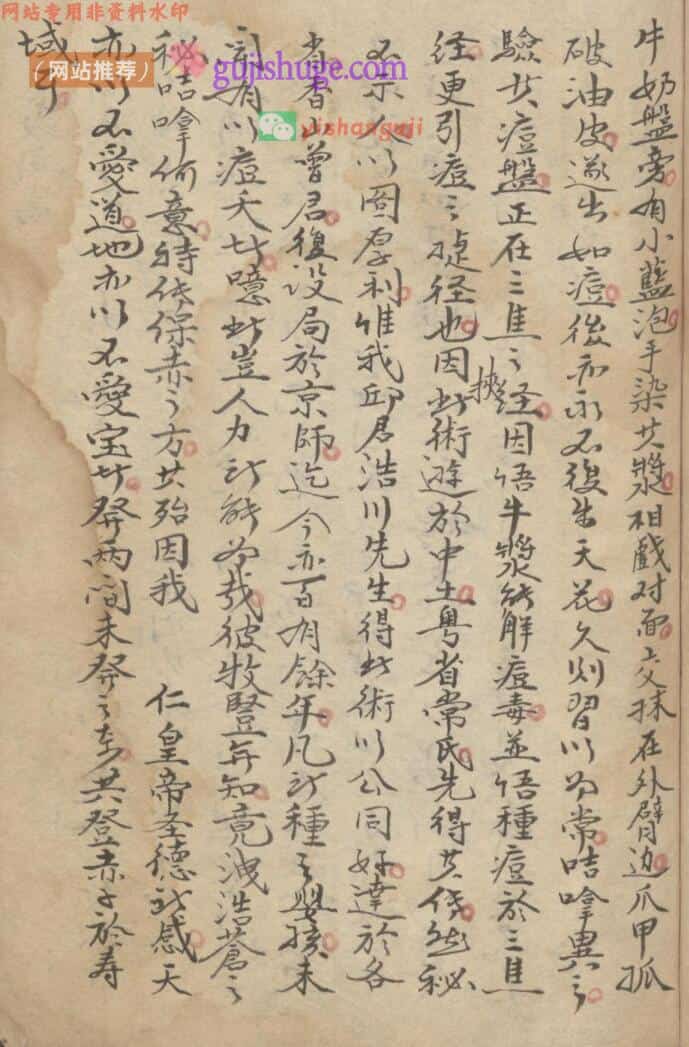 网站专用非资料水印
(网站推荐)
gujishuge.com
yishanguji
牛奶盤旁有小藍泡手染其漿相戲对面上交抹在外臂边爪甲抓
破油皮遂出如痘後亦永不復生天花久则習以为常咭嗱異之
驗其痘盤正在三焦之経因悟牛漿能解痘毒並悟種痘於三焦
経更引痘之捷径也因挾此術遊於中土粤省常氏先得其傳然秘
不示人以圖厚利惟我邱君浩川先生得此術以公同好達於各
省香山曾君復設局於京師迄今亦百有餘年凡所種之嬰孩未
闻有以痘夭者噫此豈人力所能为哉彼牧豎無知竟洩浩蒼之
秘咭嗱何意特傳保赤之方其殆因我 仁皇帝圣德所感天
亦以不愛道地亦以不愛宝者發兩间未發之奇共登赤子於寿
域乎